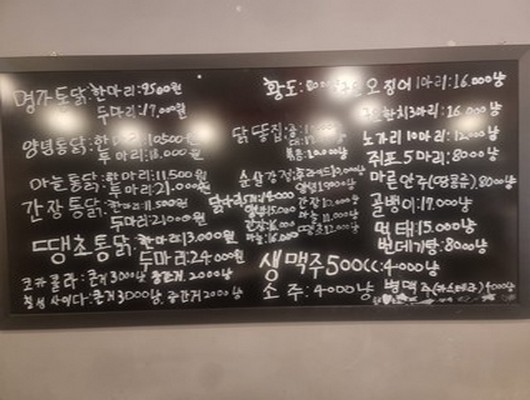 명가통닭: 한마리: 9500원
두마리: 17,000원
양념통닭: 한마리: 10500원
두마리: 18,000원
마늘통닭: 한마리: 11,500원
두마리: 21,000원
간장통닭: 한마리: 11,500원
두마리: 21,000원
땡초통닭: 한마리: 13,000원
두마리: 24,000원
코카콜라: 큰거 3000냥, 중간거 2000냥
칠성 사이다: 큰거 3000냥, 중간거 2000냥
황도:
닭똥집:
10,000냥
순살강정: 후라이드 10,000냥
간장
마늘 11,000냥
땡초 12,000냥
닭다리
14,000
15,000
간장: 16,000
마늘: 16,000
생맥주 500cc: 4000냥
소주: 4000냥 병맥주(카스테라) 4000냥
오징어 1마리: 16,000냥
한치 3마리: 16,000냥
노가리 10마리: 12,000냥
쥐포 5마리: 8000냥
마른안주(땅콩류) 8000냥
골뱅이: 17,000냥
먹태: 15,000냥
번데기탕: 8000냥